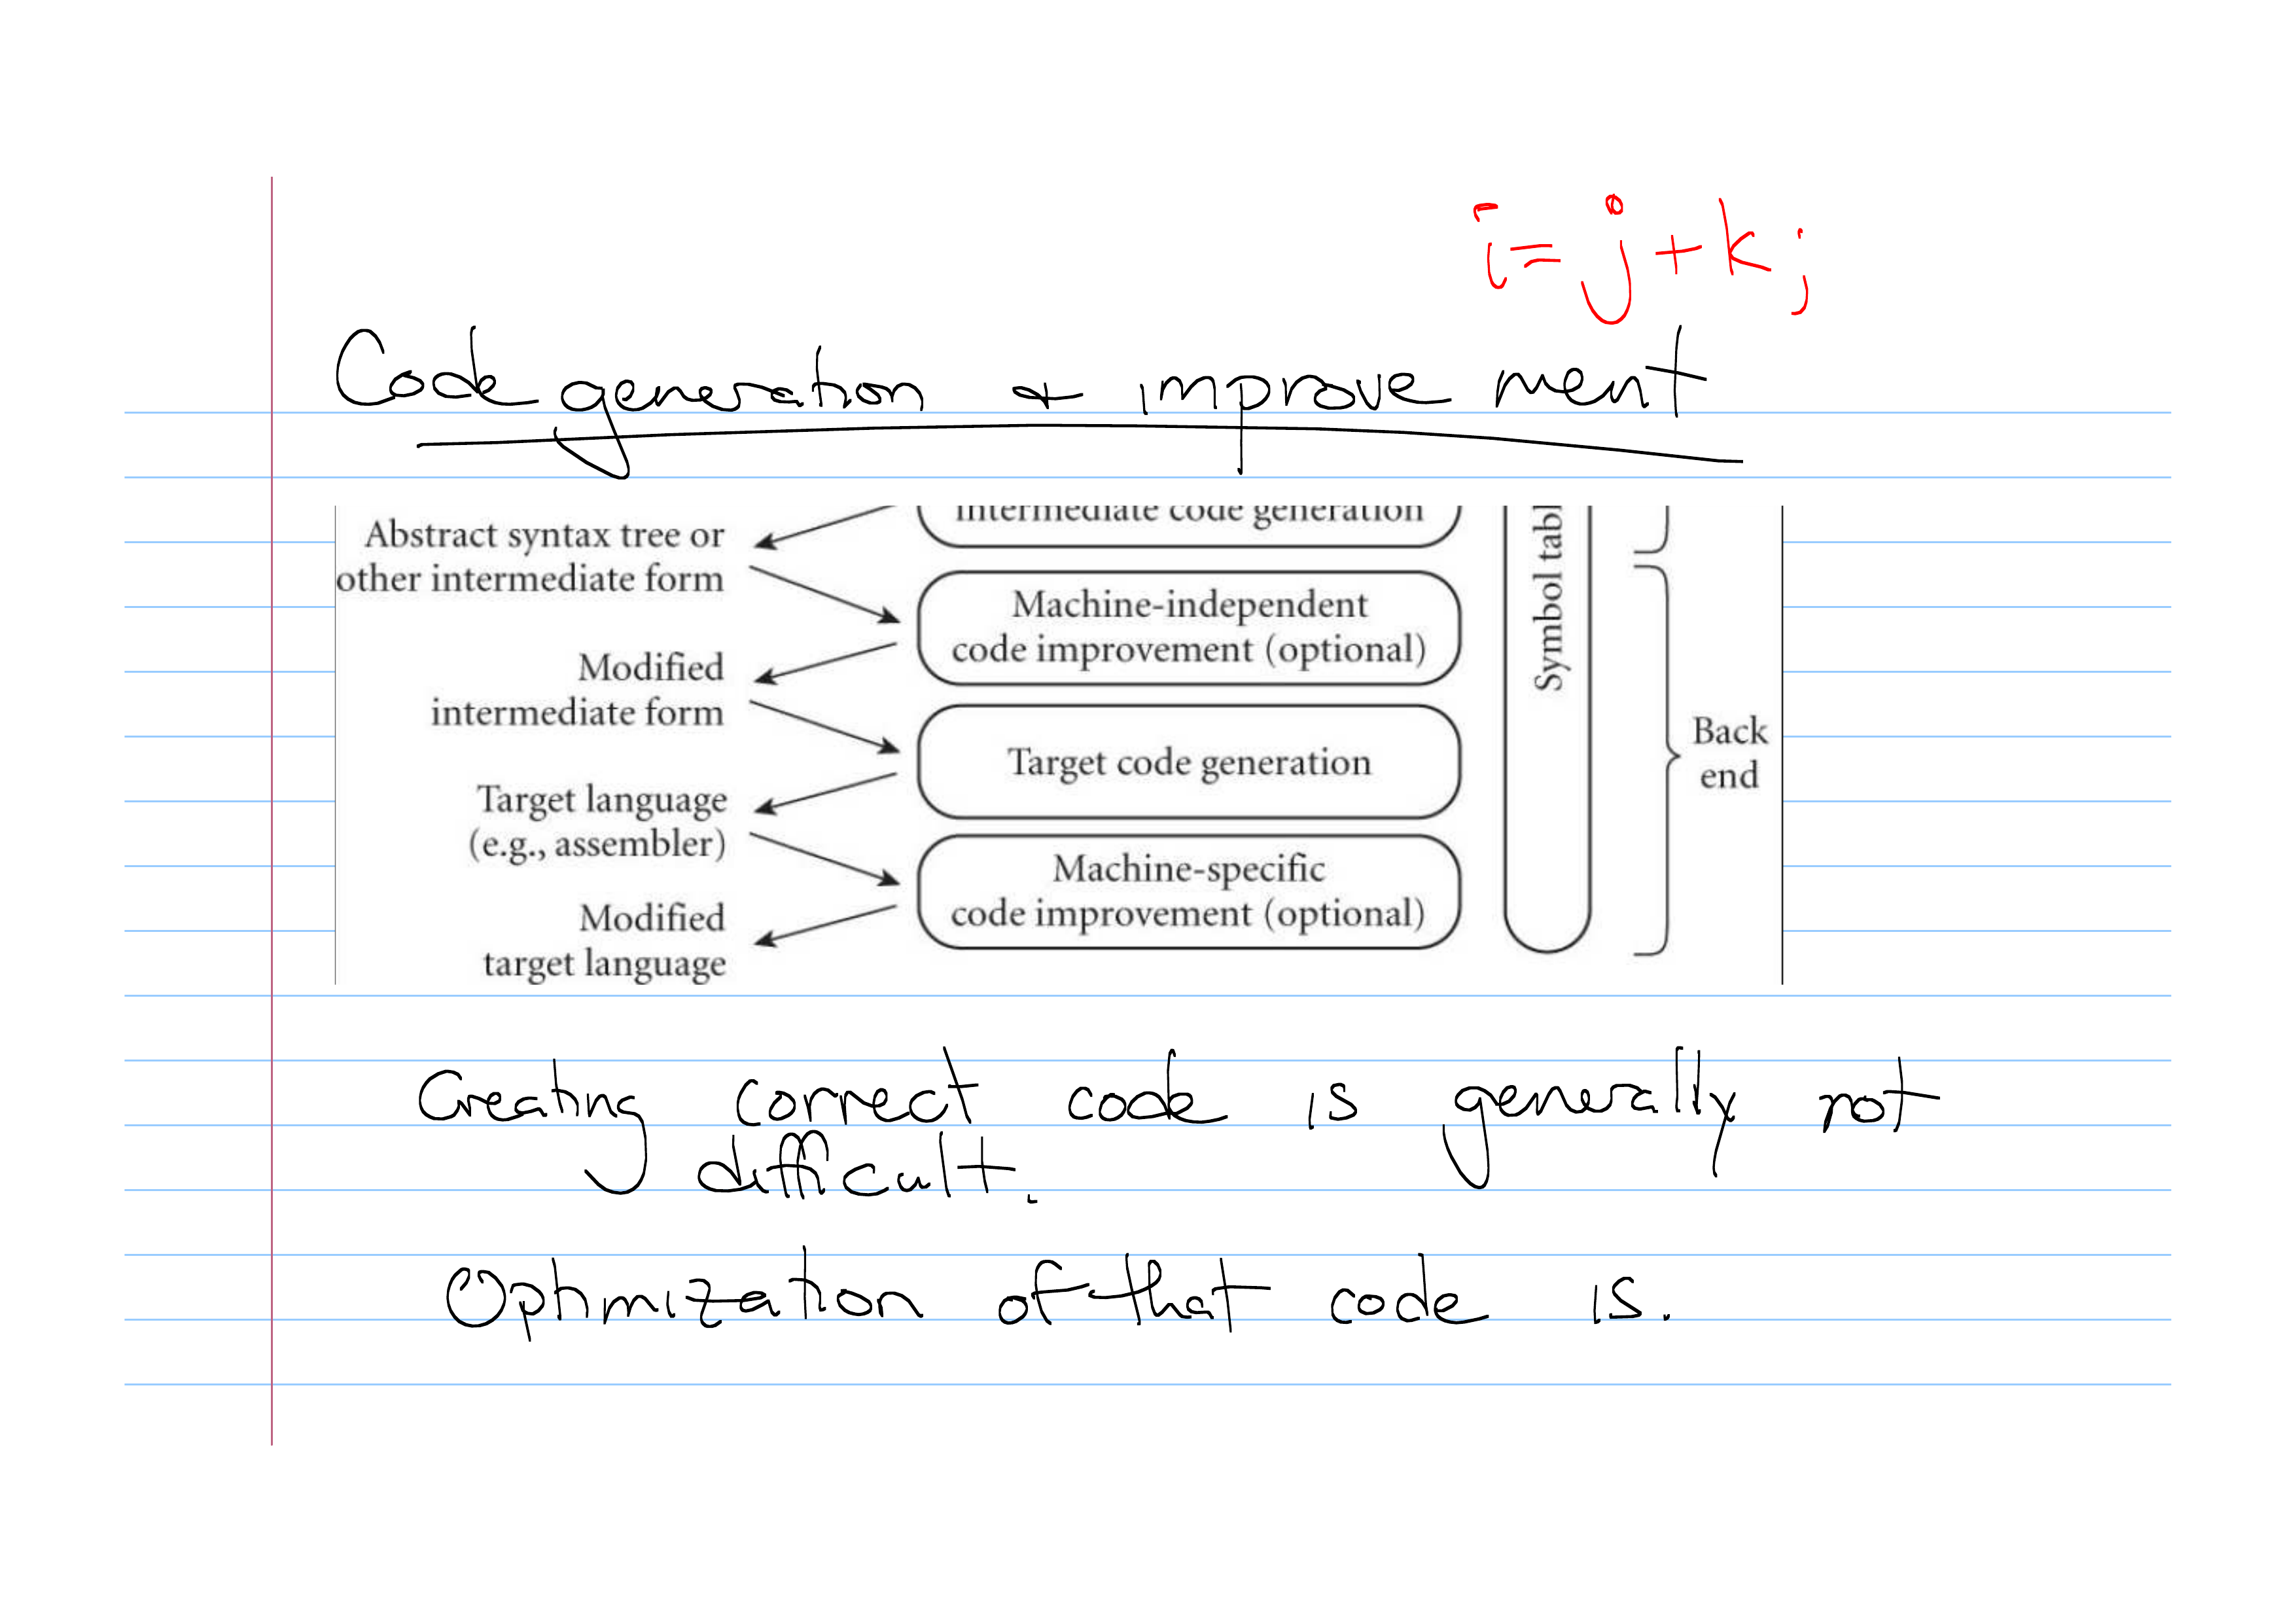 i = j + k ;
Code generation + improvement
intermediate code generation
Abstract syntax tree or
other intermediate form
Machine-independent
code improvement (optional)
Modified
intermediate form
Target code generation
Target language
(e.g., assembler)
Machine-specific
code improvement (optional)
Modified
target language
Symbol tabl
Back
end
Creating correct code is generally not
difficult.
Optimization of that code is.